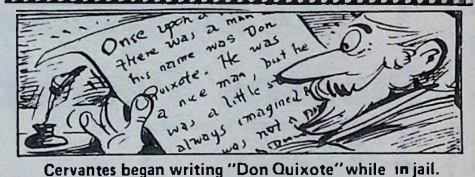 Once upon a
there was a man
his name was Don
Quixote. He was
a nice man, but he
was a little
always imagined
was not a
Cervantes began writing "Don Quixote" while in jail.